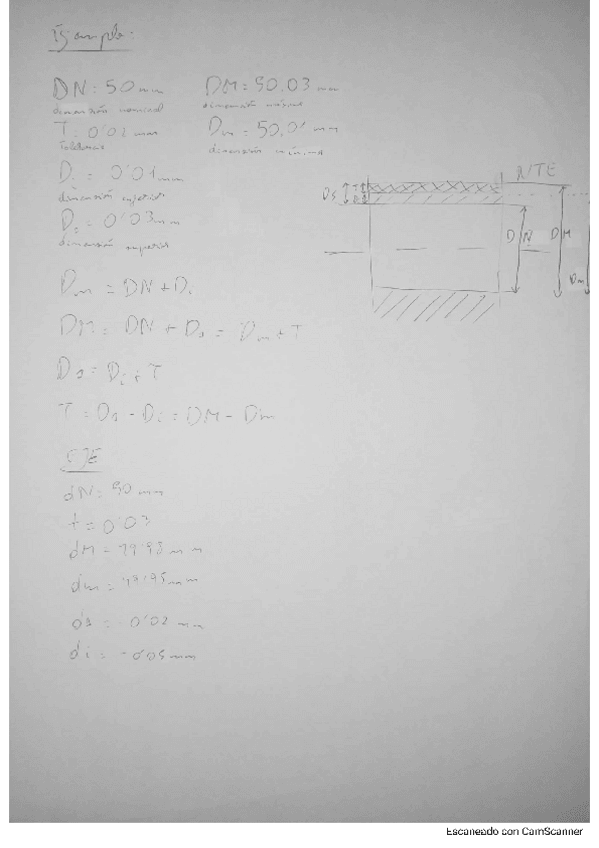 Ejemplo:
DN: 50 mm DM = 50,03 mm
dimensión nominal dimensión máxima
T = 0'02 mm Dm = 50,01 mm
tolerancia dimensión mínima
Di = 0'01 mm
dimensión inferior
Ds = 0'03 mm
dimensión superior
Dm = DN + Di
DM = DN + Ds = Dm + T
Ds = Di + T
T = Ds - Di = DM - Dm
Ds T Di DN DM Dm
EJE
dN = 50 mm
t = 0'03
dM = 49'98 mm
dm = 49'95 mm
ds = -0'02 mm
di = -0'05 mm
Escaneado con CamScanner